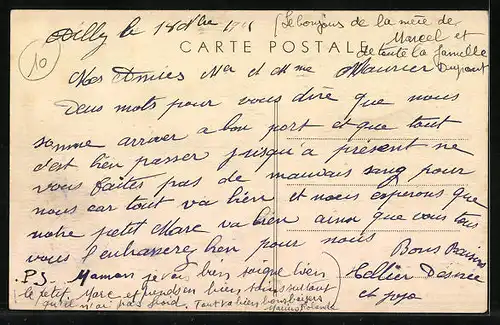 10
le 18
(le bonjour de la mère de
Marcel et
de toute la famille
CARTE POSTALE
Mes Amies Mr et Mme Maurice
Deux mots pour vous dire que nous
somme arriver a bon port et que tout
c'est bien passer jusqu'a présent ne
vous faites pas de mauvais sang pour
nous car tout va bien et nous esperons que
notre petit Marc va bien ainsi que vous tous
vous l'enbrasserez bien pour nous
Bons Baisers
P.S. Maman je vais bien soigne bien
le petit Marc et prends en bien soins surtout
qu'il n'ai pas froid. Tout va bien bons baisers
et papa